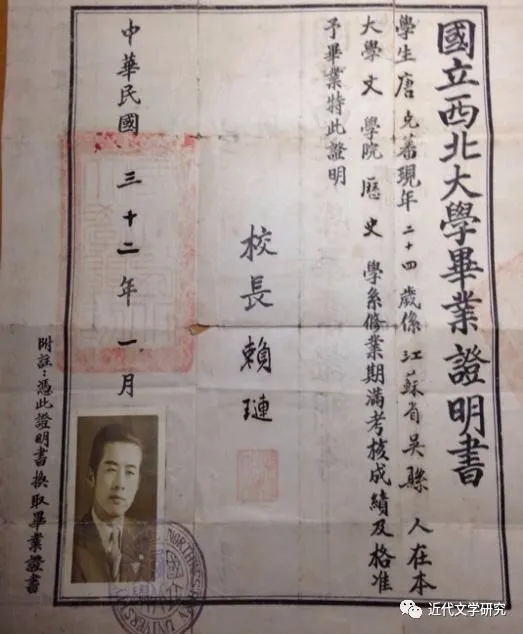 國立西北大學畢業證明書
學生 唐克蕃現年 二十四 歲係 江蘇省吳縣 人在本
大學 文 學院 歷史 學系修業期滿考核成績及格准
予畢業特此證明
校長 賴璉
中華民國 三十二年 一月
附註：憑此證明書換取畢業證書
近代文学研究